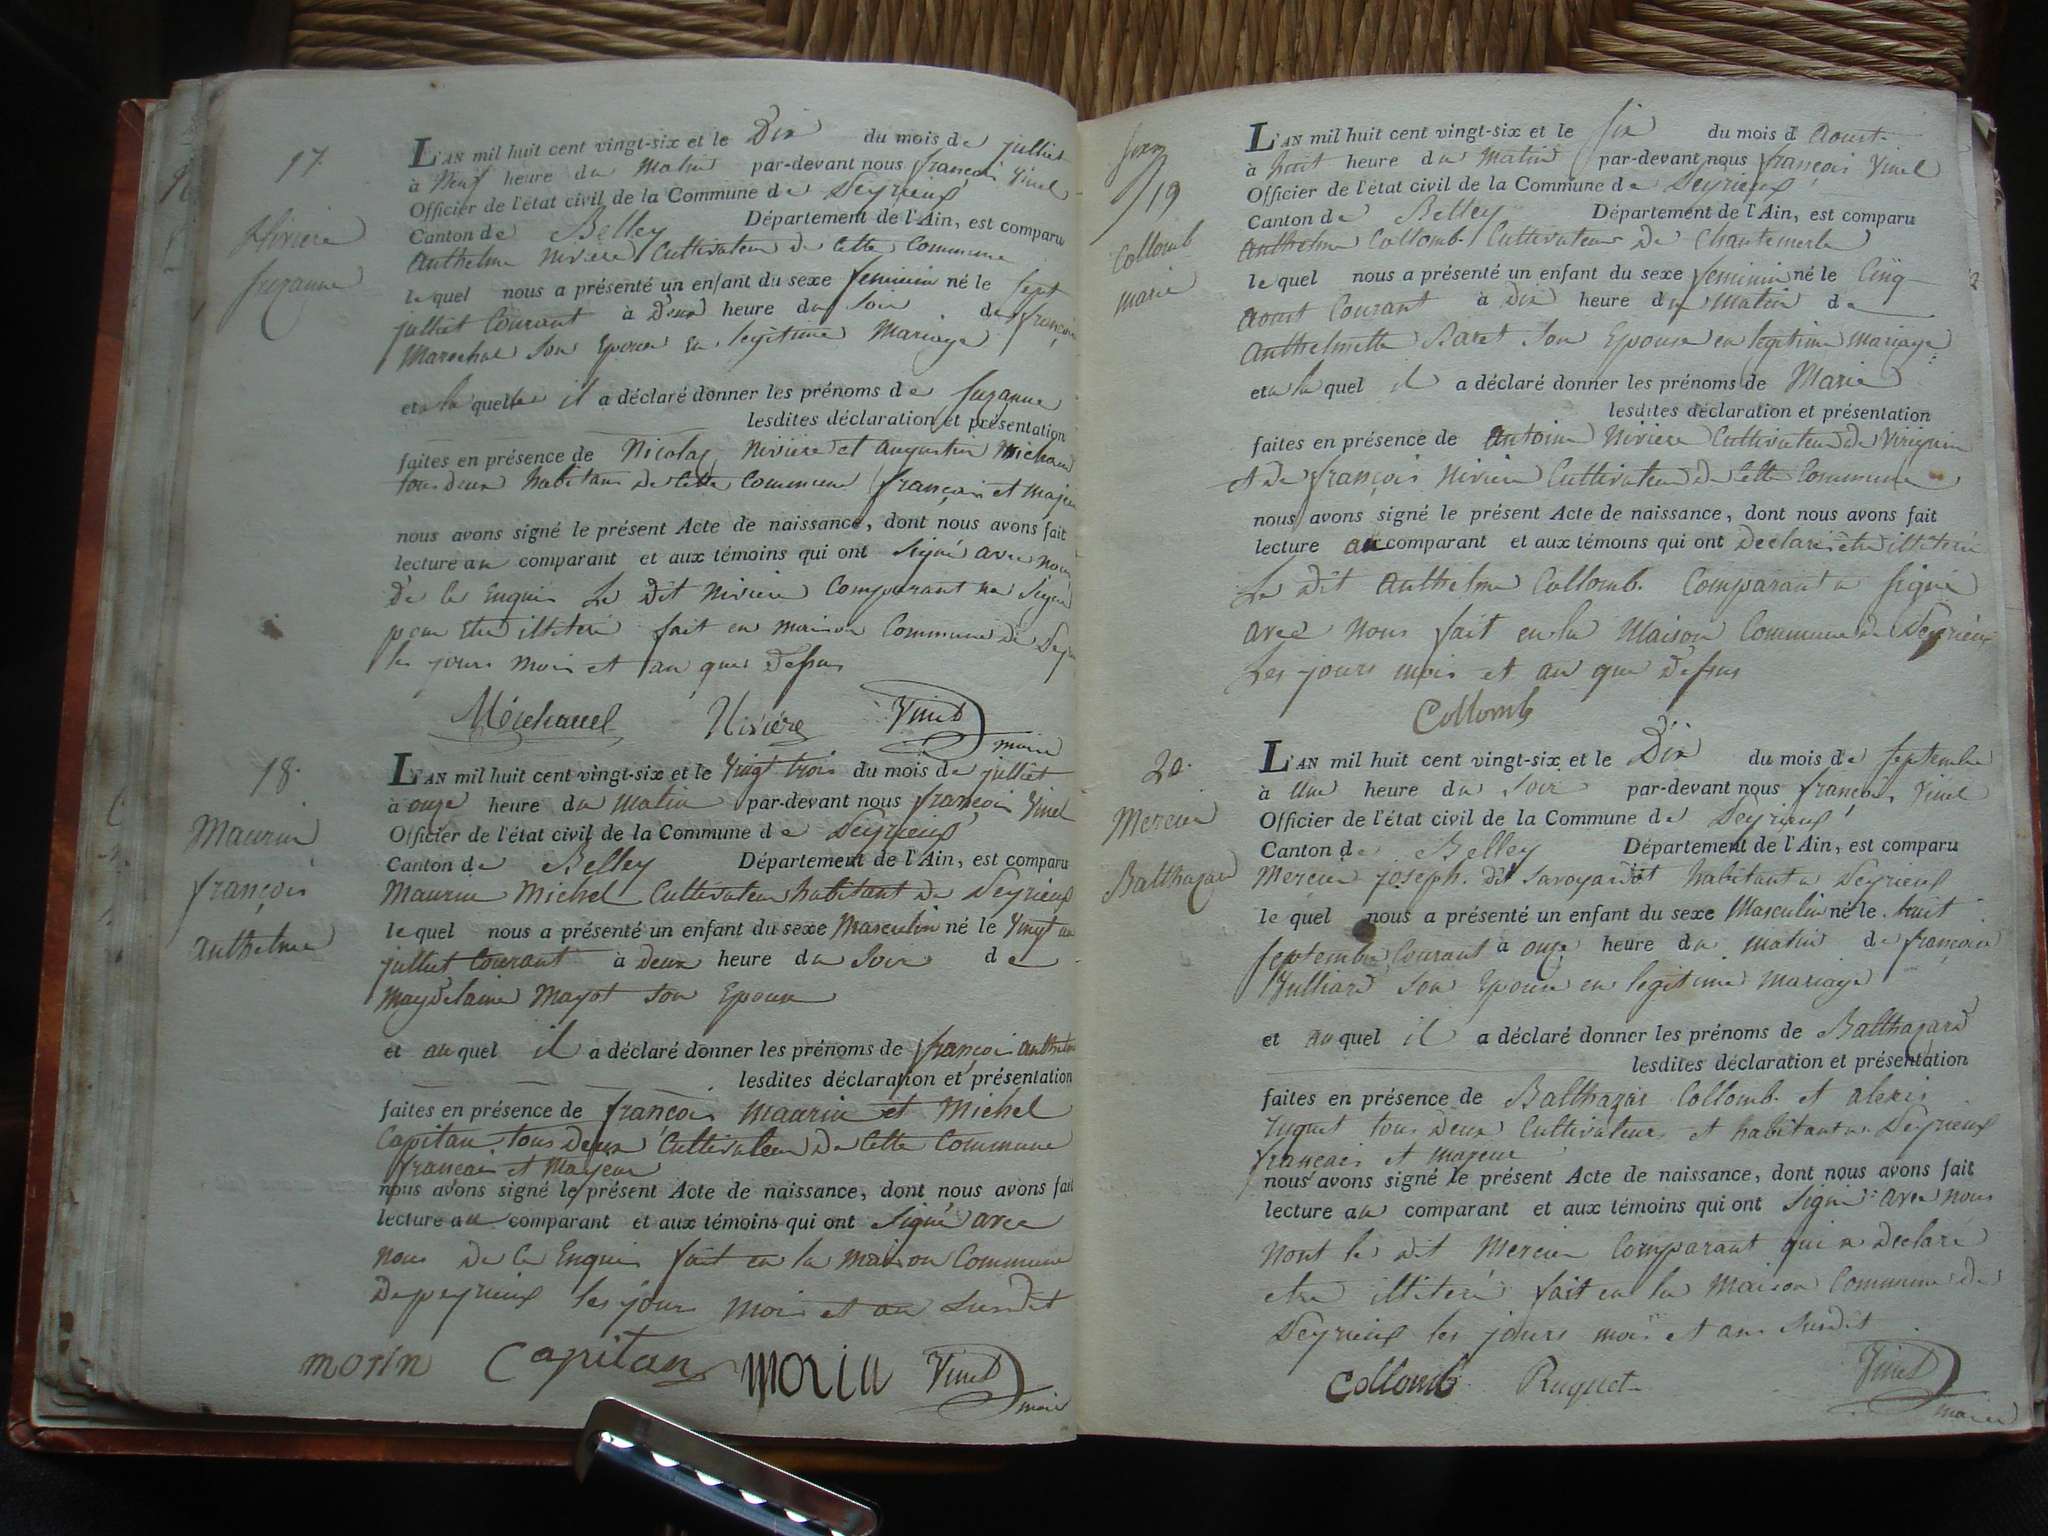 17.
Nivière
Suzanne
L'AN mil huit cent vingt-six et le Dix du mois de juillet
à Neuf heure du Matin par-devant nous françois Vinel
Officier de l'état civil de la Commune de Peyrieux
Canton de Belley Département de l'Ain, est comparu
Anthelme Nivière Cultivateur de cette Commune
le quel nous a présenté un enfant du sexe feminin né le Sept
juillet Courant à Deux heure du Soir de françoise
Marechal son Epouse en legitime Mariage
et a la quelle il a déclaré donner les prénoms de Suzanne
lesdites déclaration et présentation
faites en présence de Nicolas Nivière et augustin Michaud
tous deux habitans de cette Commune français et majeur
nous avons signé le présent Acte de naissance, dont nous avons fait
lecture au comparant et aux témoins qui ont Signé avec nous
de ce Enquis Le Dit Nivière Comparant ne Signe
pour être illiteré fait en maison Commune de
les jours mois et an que dessus
Nivière Vinel
maire
18.
Maurin
françois
anthelme
L'AN mil huit cent vingt-six et le Vingt trois du mois de juillet
à onze heure du Matin par-devant nous françois Vinel
Officier de l'état civil de la Commune de Peyrieux
Canton de Belley Département de l'Ain, est comparu
Maurin Michel Cultivateur habitant de Peyrieux
le quel nous a présenté un enfant du sexe Masculin né le Vingt un
juillet Courant à Deux heure du Soir de
Magdelaine Mayot son Epouse
et au quel il a déclaré donner les prénoms de françois anthelme
lesdites déclaration et présentation
faites en présence de françois Maurin et Michel
Capitan tous deux Cultivateur de cette Commune
francais et Majeur
nous avons signé le présent Acte de naissance, dont nous avons fait
lecture au comparant et aux témoins qui ont Signé avec
nous de ce Enquis fait en la maison Commune
De peyrieux les jours mois et an Susdit
morin Capitan morin Vinel
maire
19
Collomb
marie
L'AN mil huit cent vingt-six et le six du mois d aoust
à huit heure du Matin par-devant nous françois Vinel
Officier de l'état civil de la Commune de Peyrieux
Canton de Belley Département de l'Ain, est comparu
Anthelme Collomb Cultivateur de Chantemerle
le quel nous a présenté un enfant du sexe feminin né le Cinq
aoust Courant à Dix heure du matin de
Anthelmette son Epouse en legitime mariage
et a la quel il a déclaré donner les prénoms de Marie
lesdites déclaration et présentation
faites en présence de Antoine Nivière Cultivateur de Virignin
et de françois Nivière Cultivateur de cette Commune
nous avons signé le présent Acte de naissance, dont nous avons fait
lecture au comparant et aux témoins qui ont Declaré etre illiteré
Le dit Anthelme Collomb Comparant a Signé
avec nous fait en la Maison Commune de Peyrieux
Les jours mois et an que dessus
Collomb
20.
Mercier
Balthazard
L'AN mil huit cent vingt-six et le Dix du mois de septembre
à une heure du soir par-devant nous françois Vinel
Officier de l'état civil de la Commune de Peyrieux
Canton de Belley Département de l'Ain, est comparu
Mercier joseph dit Savoyardot habitant a Peyrieux
le quel nous a présenté un enfant du sexe Masculin né le huit
septembre Courant à onze heure du matin de françoise
Julliard son Epouse en legitime mariage
et au quel il a déclaré donner les prénoms de Balthazard
lesdites déclaration et présentation
faites en présence de Balthazar Collomb et alexis
tous deux Cultivateurs et habitant a Peyrieux
français et majeur
nous avons signé le présent Acte de naissance, dont nous avons fait
lecture au comparant et aux témoins qui ont Signé avec nous
Nont le dit Mercier Comparant qui a declaré
etre illiteré fait en la Maison Commune de
Peyrieux les jours mois et an Susdit
Collomb Ruguet Vinel
maire